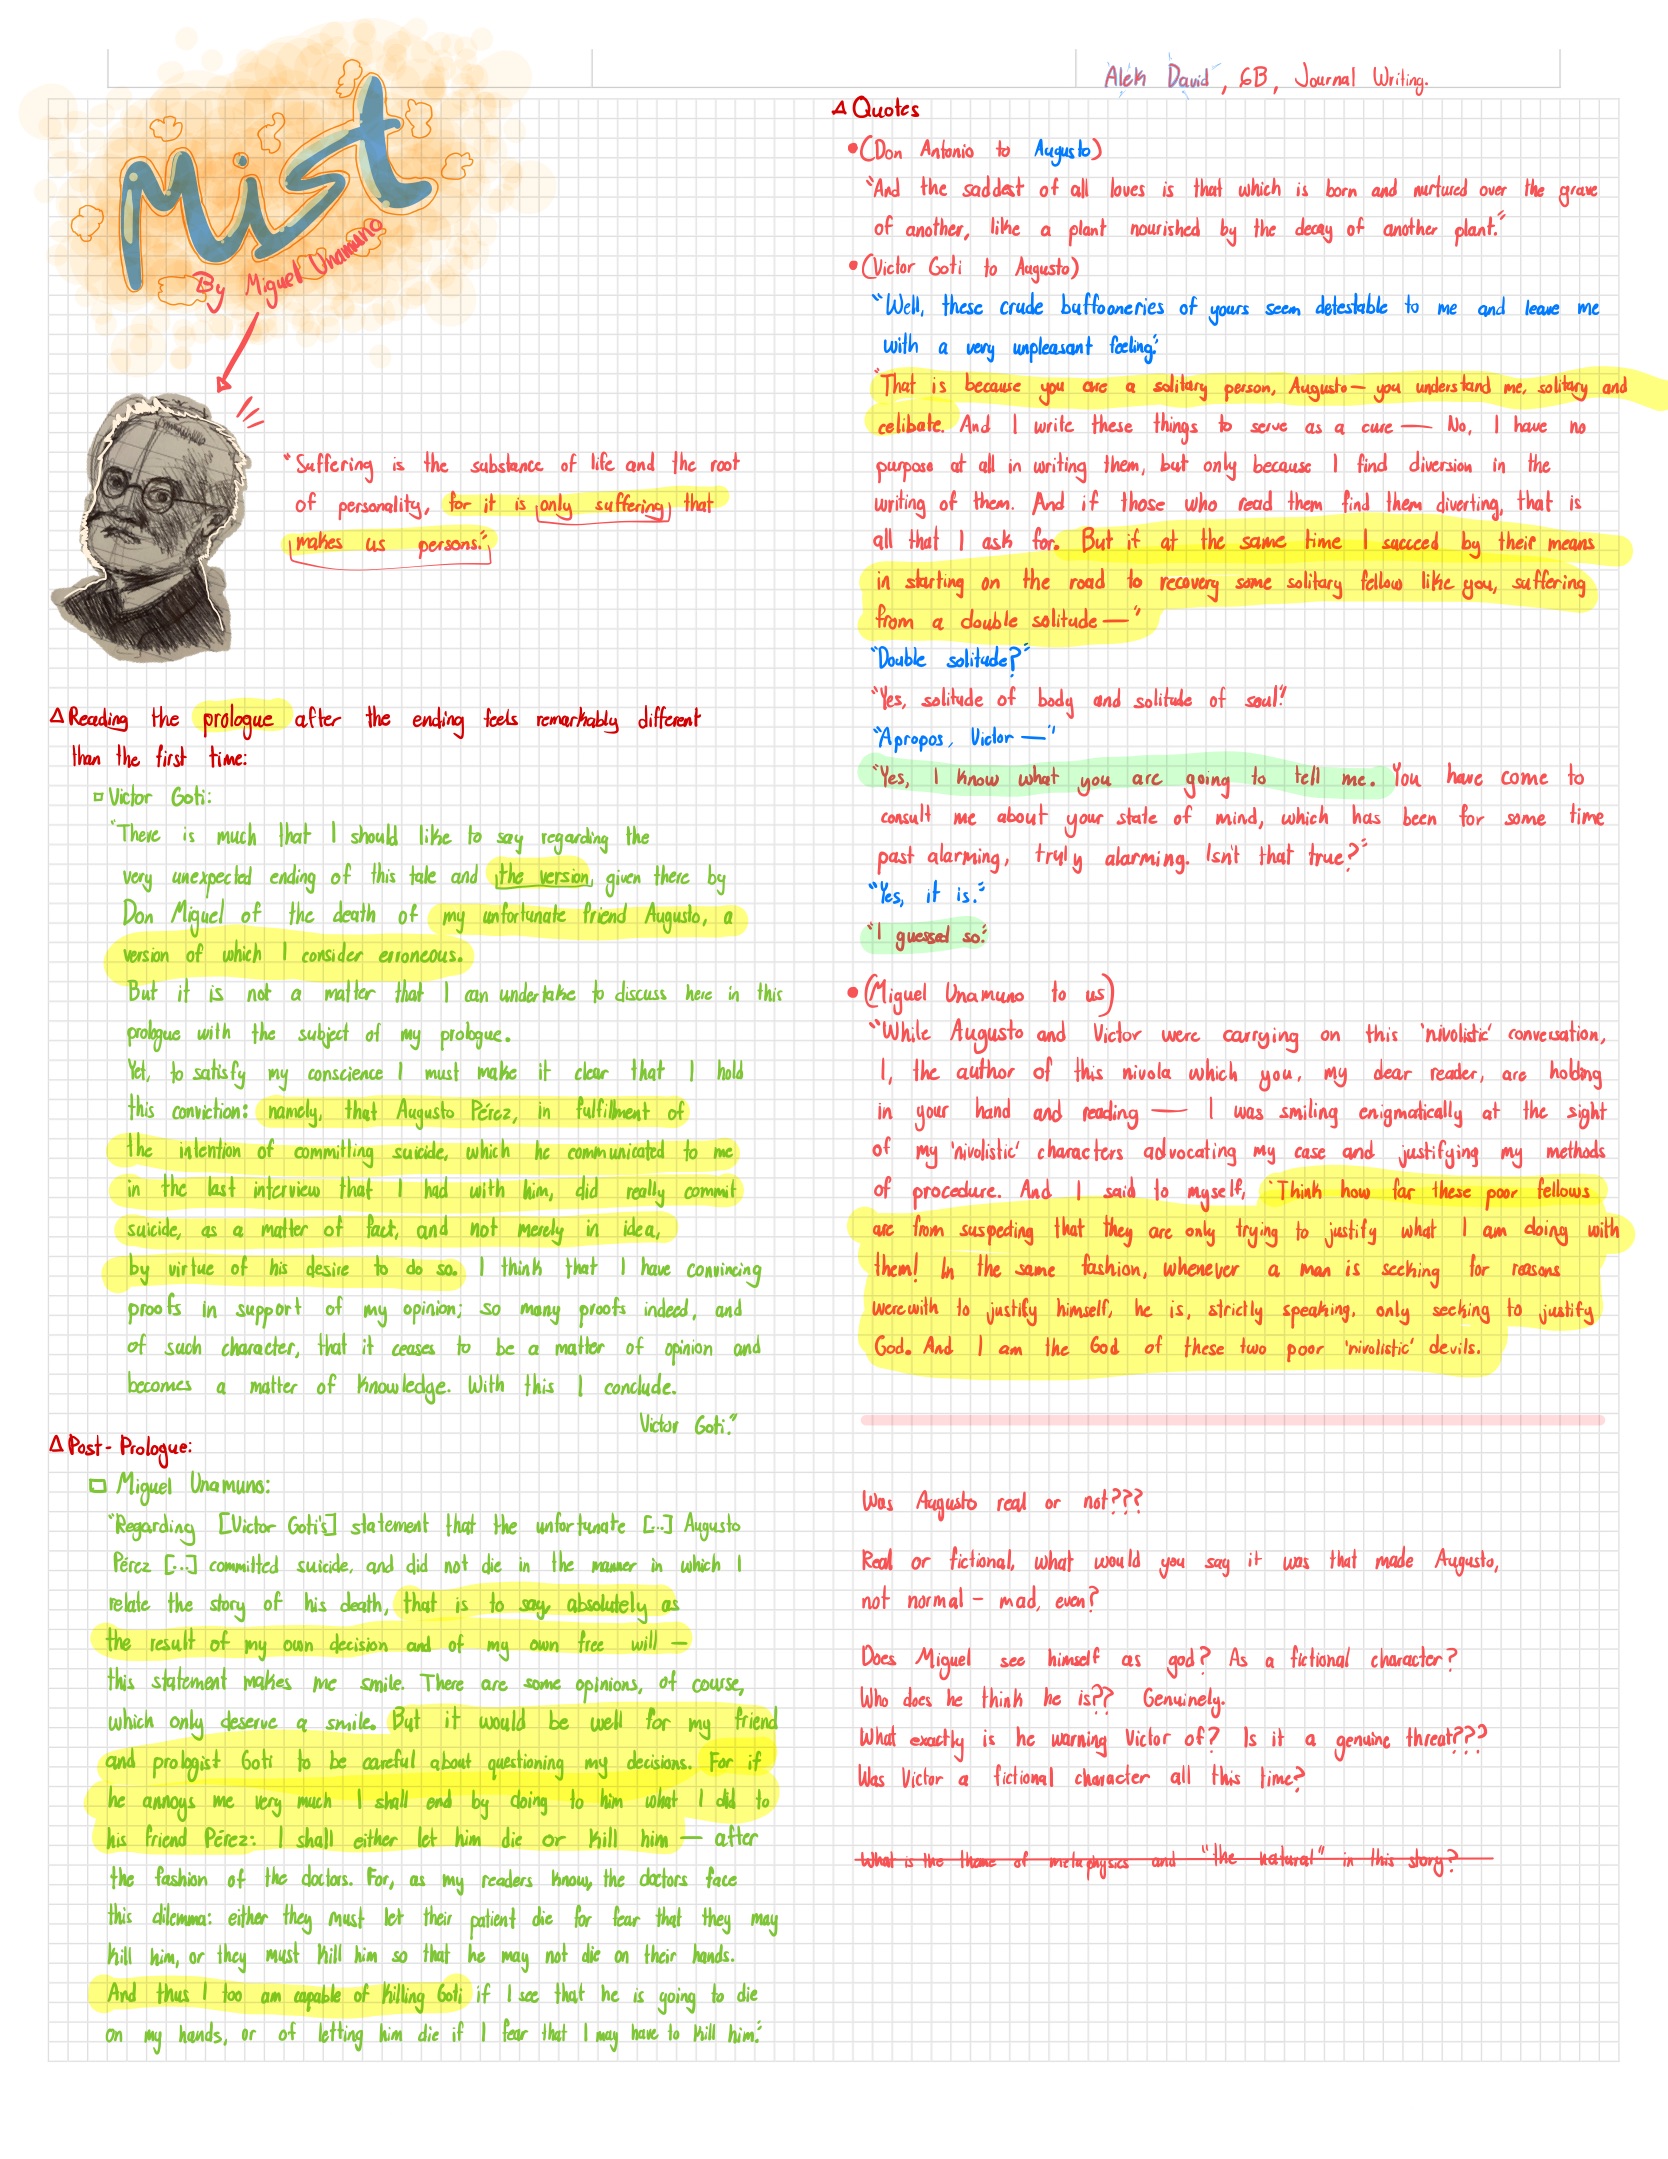 Mist
By Miguel Unamuno
"Suffering is the substance of life and the root
of personality, for it is only suffering that
makes us persons."
Δ Reading the prologue after the ending feels remarkably different
than the first time:
Victor Goti:
"There is much that I should like to say regarding the
very unexpected ending of this tale and the version given there by
Don Miguel of the death of my unfortunate friend Augusto, a
version of which I consider erroneous.
But it is not a matter that I can undertake to discuss here in this
prologue with the subject of my prologue.
Yet, to satisfy my conscience I must make it clear that I hold
this conviction: namely, that Augusto Pérez, in fulfillment of
the intention of committing suicide, which he communicated to me
in the last interview that I had with him, did really commit
suicide, as a matter of fact, and not merely in idea,
by virtue of his desire to do so. I think that I have convincing
proofs in support of my opinion; so many proofs indeed, and
of such character, that it ceases to be a matter of opinion and
becomes a matter of knowledge. With this I conclude.
Victor Goti."
Δ Post-Prologue:
Miguel Unamuno:
"Regarding [Victor Goti's] statement that the unfortunate [...] Augusto
Pérez [...] committed suicide, and did not die in the manner in which I
relate the story of his death, that is to say, absolutely as
the result of my own decision and of my own free will —
this statement makes me smile. There are some opinions, of course,
which only deserve a smile. But it would be well for my friend
and prologist Goti to be careful about questioning my decisions. For if
he annoys me very much I shall end by doing to him what I did to
his friend Pérez: I shall either let him die or kill him — after
the fashion of the doctors. For, as my readers know, the doctors face
this dilemma: either they must let their patient die for fear that they may
kill him, or they must kill him so that he may not die on their hands.
And thus I too am capable of killing Goti if I see that he is going to die
on my hands, or of letting him die if I fear that I may have to kill him."
Alek David, 6B, Journal Writing.
Δ Quotes
• (Don Antonio to Augusto)
"And the saddest of all loves is that which is born and nurtured over the grave
of another, like a plant nourished by the decay of another plant."
• (Victor Goti to Augusto)
"Well, these crude buffooneries of yours seem detestable to me and leave me
with a very unpleasant feeling."
"That is because you are a solitary person, Augusto — you understand me, solitary and
celibate. And I write these things to serve as a cure — No, I have no
purpose at all in writing them, but only because I find diversion in the
writing of them. And if those who read them find them diverting, that is
all that I ask for. But if at the same time I succeed by their means
in starting on the road to recovery some solitary fellow like you, suffering
from a double solitude —"
"Double solitude?"
"Yes, solitude of body and solitude of soul."
"Apropos, Victor —"
"Yes, I know what you are going to tell me. You have come to
consult me about your state of mind, which has been for some time
past alarming, truly alarming. Isn't that true?"
"Yes, it is."
"I guessed so."
• (Miguel Unamuno to us)
"While Augusto and Victor were carrying on this 'nivolistic' conversation,
I, the author of this nivola which you, my dear reader, are holding
in your hand and reading — I was smiling enigmatically at the sight
of my 'nivolistic' characters advocating my case and justifying my methods
of procedure. And I said to myself, 'Think how far these poor fellows
are from suspecting that they are only trying to justify what I am doing with
them! In the same fashion, whenever a man is seeking for reasons
werewith to justify himself, he is, strictly speaking, only seeking to justify
God. And I am the God of these two poor 'nivolistic' devils.
Was Augusto real or not???
Real or fictional, what would you say it was that made Augusto,
not normal - mad, even?
Does Miguel see himself as god? As a fictional character?
Who does he think he is?? Genuinely.
What exactly is he warning Victor of? Is it a genuine threat???
Was Victor a fictional character all this time?
What is the theme of metaphysics and "the natural" in this story?